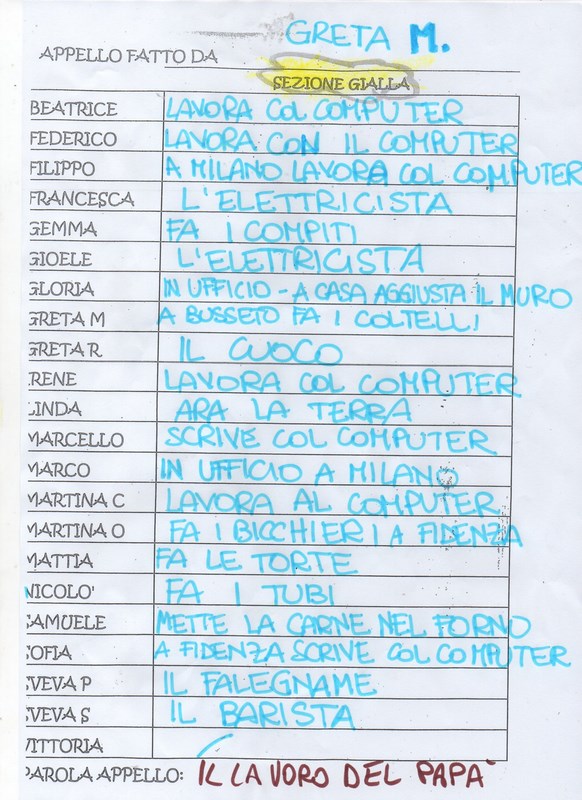 GRETA M.
APPELLO FATTO DA
SEZIONE GIALLA
BEATRICE LAVORA COL COMPUTER
FEDERICO LAVORA CON IL COMPUTER
FILIPPO A MILANO LAVORA COL COMPUTER
FRANCESCA L'ELETTRICISTA
GEMMA FA I COMPITI
GIOELE L'ELETTRICISTA
GLORIA IN UFFICIO - A CASA AGGIUSTA IL MURO
GRETA M A BUSSETO FA I COLTELLI
GRETA R IL CUOCO
IRENE LAVORA COL COMPUTER
LINDA ARA LA TERRA
MARCELLO SCRIVE COL COMPUTER
MARCO IN UFFICIO A MILANO
MARTINA C LAVORA AL COMPUTER
MARTINA O FA I BICCHIERI A FIDENZA
MATTIA FA LE TORTE
NICOLO' FA I TUBI
SAMUELE METTE LA CARNE NEL FORNO
SOFIA A FIDENZA SCRIVE COL COMPUTER
SVEVA P IL FALEGNAME
SVEVA S IL BARISTA
VITTORIA
PAROLA APPELLO: IL LAVORO DEL PAPA'